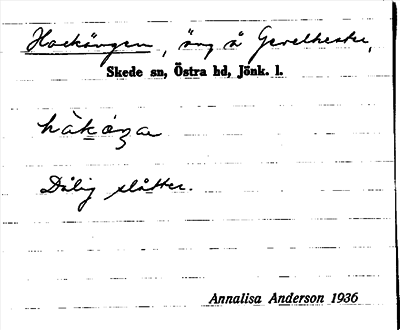 Hackängen, äng å Gevelhester,
Skede sn, Östra hd, Jönk. l.
hàkǽŋan
Dålig slåtter.
Annalisa Anderson 1936